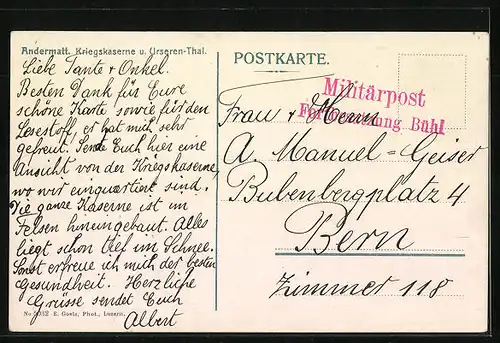 Andermatt. Kriegskaserne u. Urseren-Thal.
Liebe Tante + Onkel.
Besten Dank für Eure
schöne Karte sowie für den
Lesestoff, er hat mich sehr
gefreut. Sende Euch hier eine
Ansicht von der Kriegskaserne,
wo wir einquartiert sind.
Die ganze Kaserne ist im
Felsen hineingebaut. Alles
liegt schon tief im Schnee.
Sonst erfreue ich mich der besten
Gesundheit. Herzliche
Grüsse sendet Euch
Albert
E. Goetz, Phot., Luzern.
POSTKARTE.
Militärpost
Bühl
Frau + Herrn
A. Manuel-Geiser
Bubenbergplatz 4
Bern
Zimmer 118